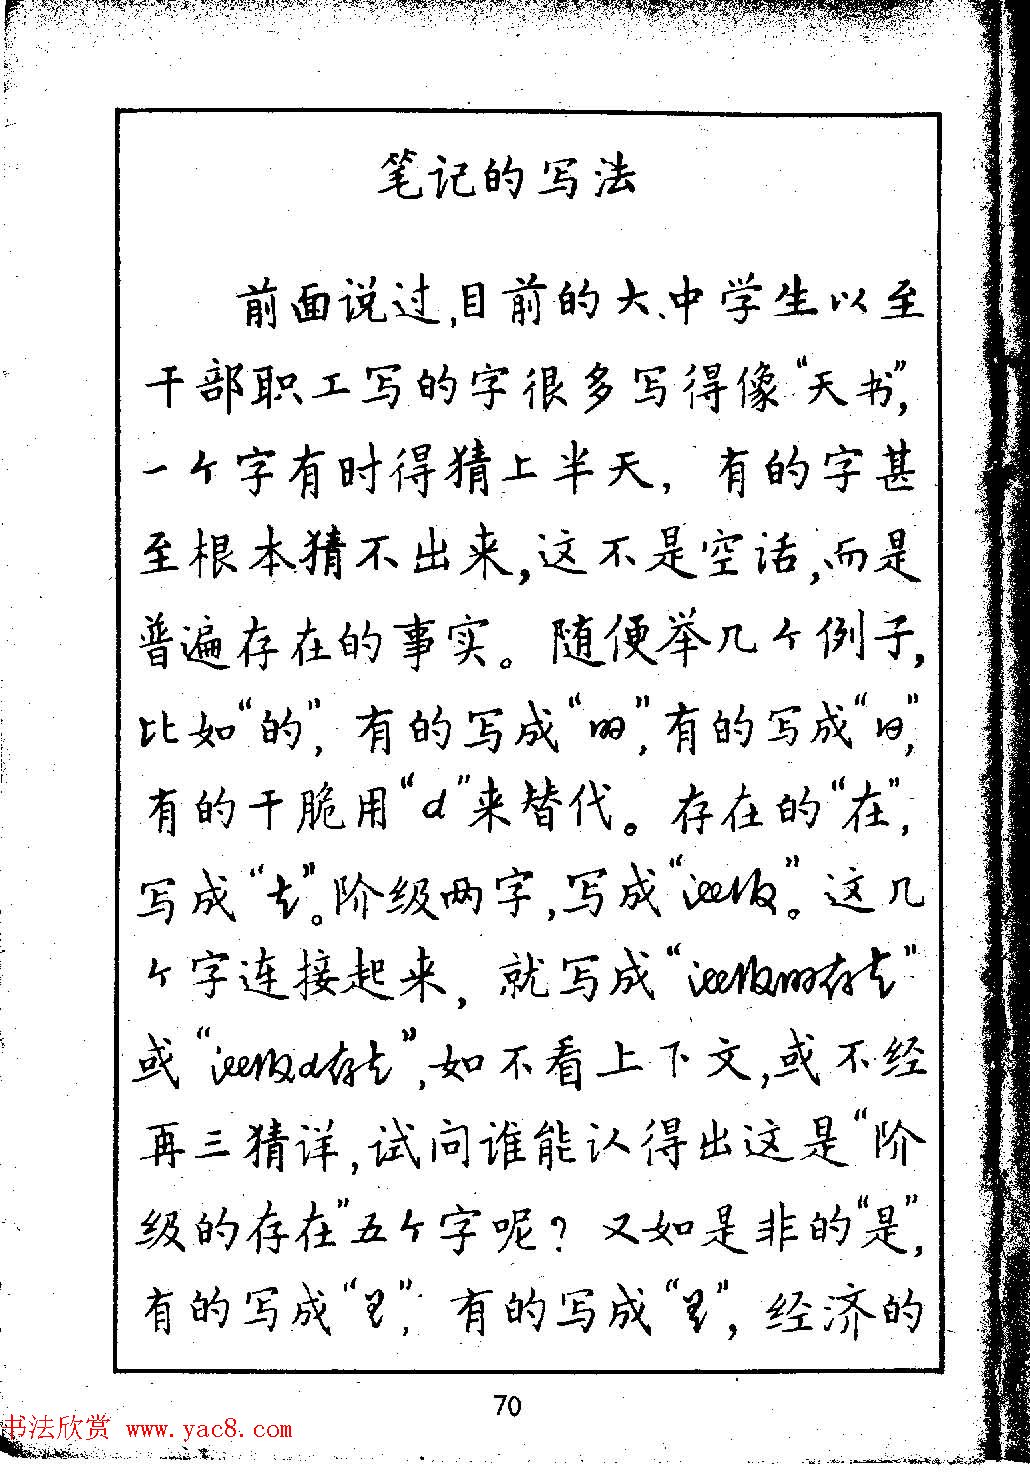 笔记的写法
前面说过,目前的大、中学生以至
干部职工写的字很多写得像“天书”,
一个字有时得猜上半天,有的字甚
至根本猜不出来,这不是空话,而是
普遍存在的事实。随便举几个例子,
比如“的”,有的写成“”,有的写成“”,
有的干脆用“d”来替代。存在的“在”,
写成“”。阶级两字,写成“”。这几
个字连接起来,就写成“”
或“”,如不看上下文,或不经
再三猜详,试问谁能认得出这是“阶
级的存在”五个字呢?又如是非的“是”,
有的写成“”,有的写成“”,经济的
70
书法欣赏 www.yac8.com